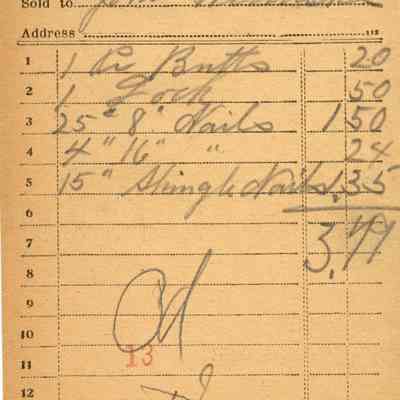 Sold to John
Address
1 1 Pr Butts 20
2 1 Lock 50
3 25 " 8 " Nails 1 50
4 4 " 16 " " 24
5 15 " Shingle Nails 1.35
6
7 3.79
8
9
10
11 13
12